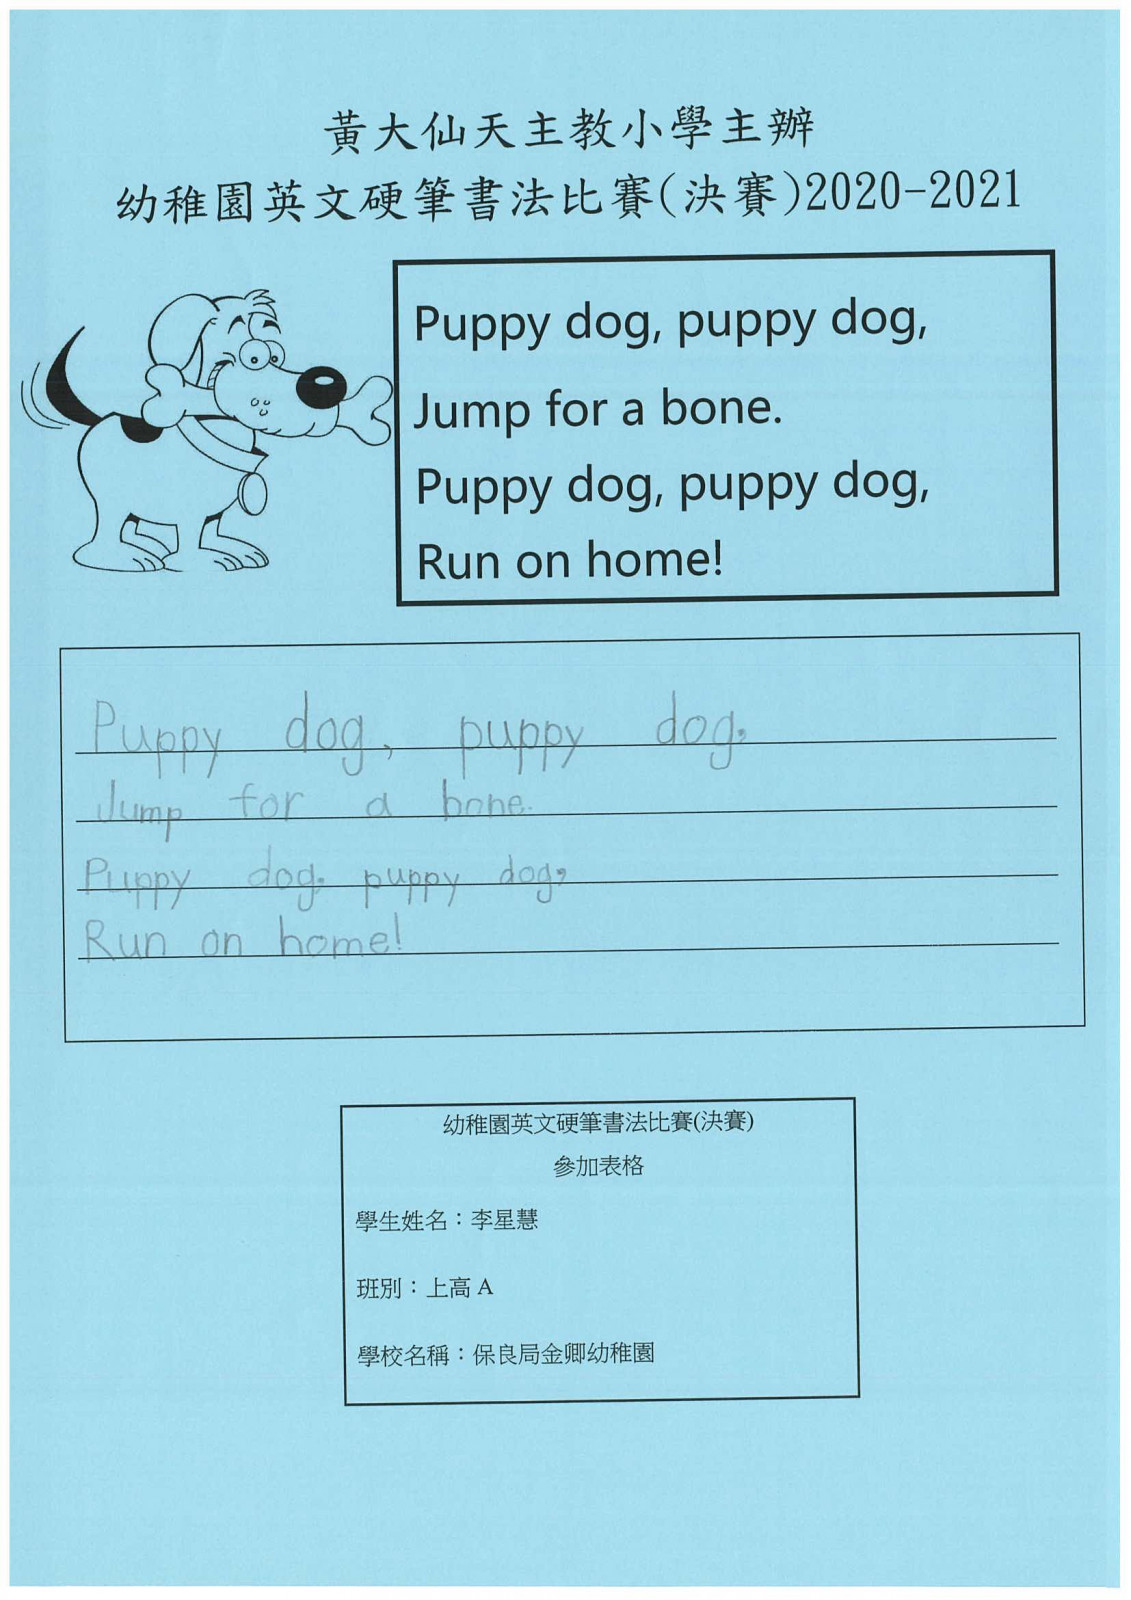 黃大仙天主教小學主辦
幼稚園英文硬筆書法比賽(決賽)2020-2021
Puppy dog, puppy dog,
Jump for a bone.
Puppy dog, puppy dog,
Run on home!
Puppy dog, puppy dog,
Jump for a bone.
Puppy dog, puppy dog,
Run on home!
幼稚園英文硬筆書法比賽(決賽)
參加表格
學生姓名：李星慧
班別：上高 A
學校名稱：保良局金卿幼稚園